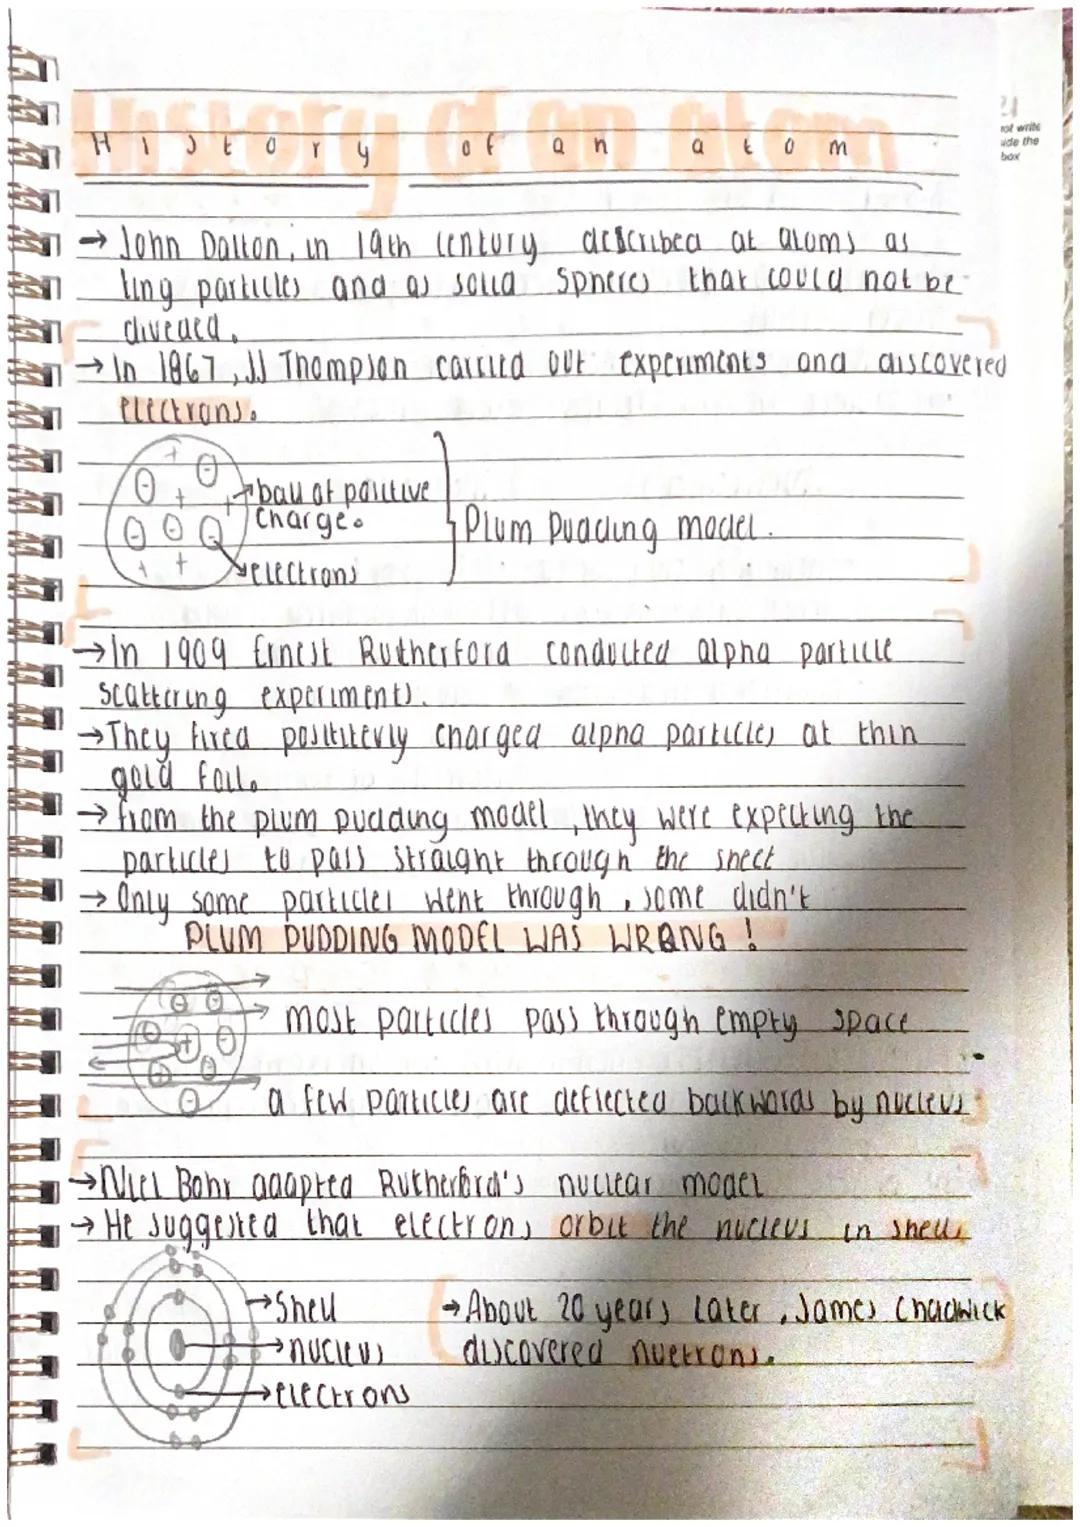 History of an atom
History of an atom
not write
side the
box
→ John Dalton, in 19th century described at atoms as
ting particles and as solid spheres that could not be
divedcd.
→ In 1867, JJ Thompson carried out experiments and discovered
electrons.
ball of poistive
charge.
electrons
Plum Pudding model.
→ In 1909 Ernest Rutherford conducted alpha particle
scattering experiments.
→ They fired posititevly charged alpha particles at thin
gold foil.
→ from the plum pudding model, they were expecting the
particles to pass straight through the sheet
→ Only some particles went through, some didn't
PLUM PUDDING MODEL WAS WRONG !
most particles pass through empty space
a few particles are deflected backwards by nucleus
→ Niel Bohr adapted Rutherford's nuclear model
→ He suggested that electrons orbit the nucleus in shells
→ Shell
→ nucleus
→ electrons
→ About 20 years later, James Chadwick
discovered nuetrons.